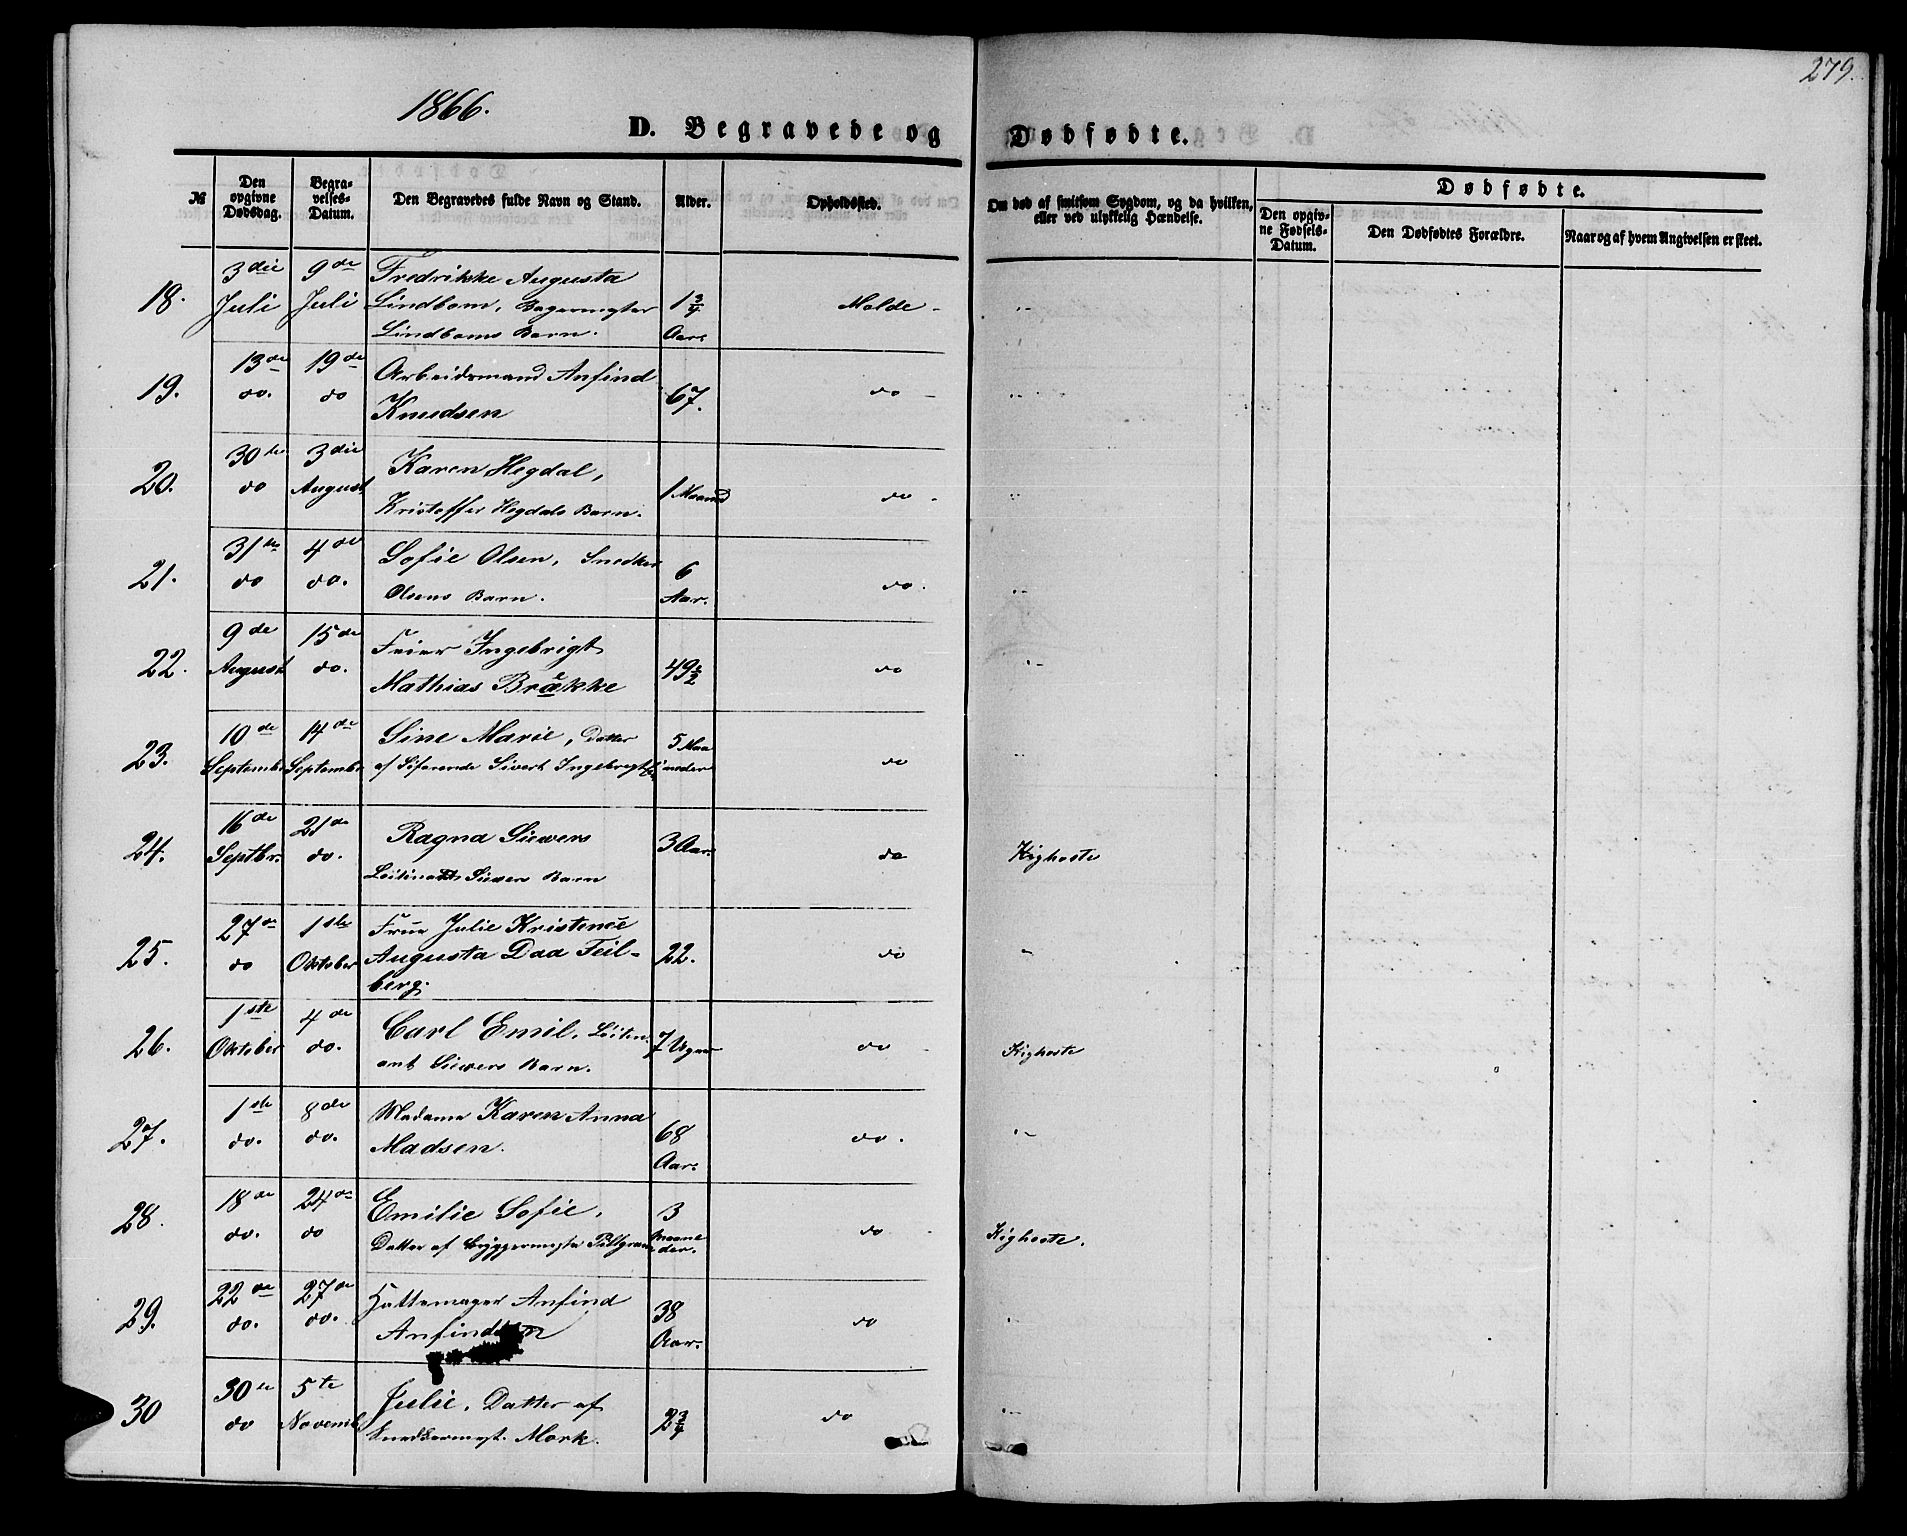 279.
1866.
D. Begravede og Dødfødte.
№
Den opgivne Dødsdag.
Begravelses-Datum.
Den Begravedes fulde Navn og Stand.
Alder.
Opholdssted.
Om død af smitsom Sygdom, og da hvilken, eller ved ulykkelig Hændelse.
Dødfødte.
Den opgivne Fødsels-Datum.
Den Dødfødtes Forældre.
Naar og af hvem Angivelsen er skeet.
18. 3die Juli 9de Juli Fredrikke Augusta Lindbom, Bagermester Lindboms Barn. 1 3/4 Aar. Molde -
19. 13de do. 19de do Arbeidsmand Anfind Knudsen 67. do -
20. 30te do 3die August Karen Hegdal, Kristoffer Hegdals Barn. 1 Maaned do -
21. 31te do 4de do. Sofie Olsen, Snedker Olsens Barn. 6 Aar. do.
22. 9de August 15de do. Feier Ingebrigt Mathias Brække 49 1/2 do
23. 10de Septembr 14de Septembr Sine Marie, Datter af Søfarende Sivert Ingebrigts 5 Maaneder do
24. 16de Septbr. 21de do. Ragna Siewers Løitnant Siewers Barn 3 Aar. do Kighoste
25. 27de do 1ste Oktober Frue Julie Kristence Augusta Daa Feilberg. 22. do
26. 1ste Oktober 4de do. Carl Emil, Løitenant Siewers Barn. 7 Uger do - Kighoste
27. 1ste do. 8de do. Madame Karen Anna Madsen. 68 Aar. do.
28. 18de do. 24de do Emilie Sofie, Datter af Bryggermester Piltgran 3 Maaneder. do - Kighoste.
29. 22de do. 27de do. Hattemager Anfind Anfindsen 38 Aar. do
30 30te do 5te Novemb. Julie, Datter af Snedkermest. Mork. 2 3/4 do